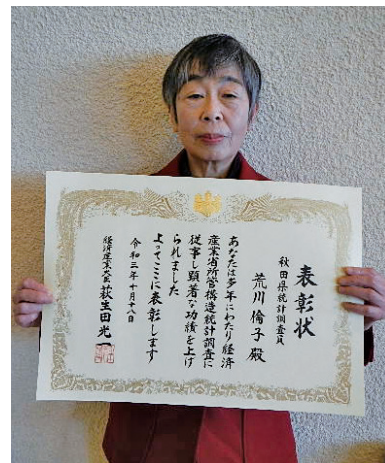 表彰状
秋田県統計調査員
荒川倫子殿
あなたは多年にわたり経済
産業省所管構造統計調査に
従事し顕著な功績を上げ
られました
よってここに表彰します
令和三年十月十八日
経済産業大臣萩生田光一